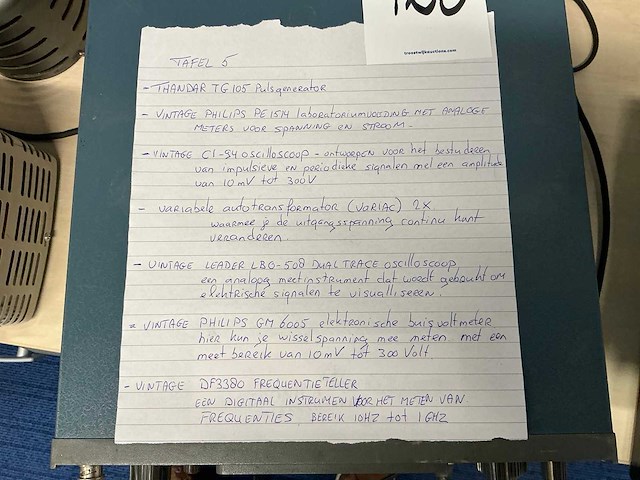 troostwijkauctions.com
TAFEL 5
- THANDAR TG 105 Pulsgenerator
- VINTAGE PHILIPS PE 1514 laboratoriumvoeding MET ANALOGE
METERS VOOR SPANNING EN STROOM -
- VINTAGE C1-94 oscilloscoop - ontworpen voor het bestuderen
van impulsieve en periodieke signalen met een amplitude
van 10 mV tot 300 V
- variabele autotransformator (VARIAC) 2x
waarmee je de uitgangsspanning continu kunt
veranderen.
- VINTAGE LEADER LBO-508 DUAL TRACE oscilloscoop
een analoog meetinstrument dat wordt gebruikt om
elektrische signalen te visualiseren.
- VINTAGE PHILIPS GM 6005 elektronische buisvoltmeter
hier kun je wisselspanning mee meten met een
meet bereik van 10 mV tot 300 Volt
- VINTAGE DF3380 FREQUENTIETELLER
EEN DIGITAAL INSTRUMEN VOOR HET METEN VAN
FREQUENTIES BEREIK 10HZ tot 1GHZ